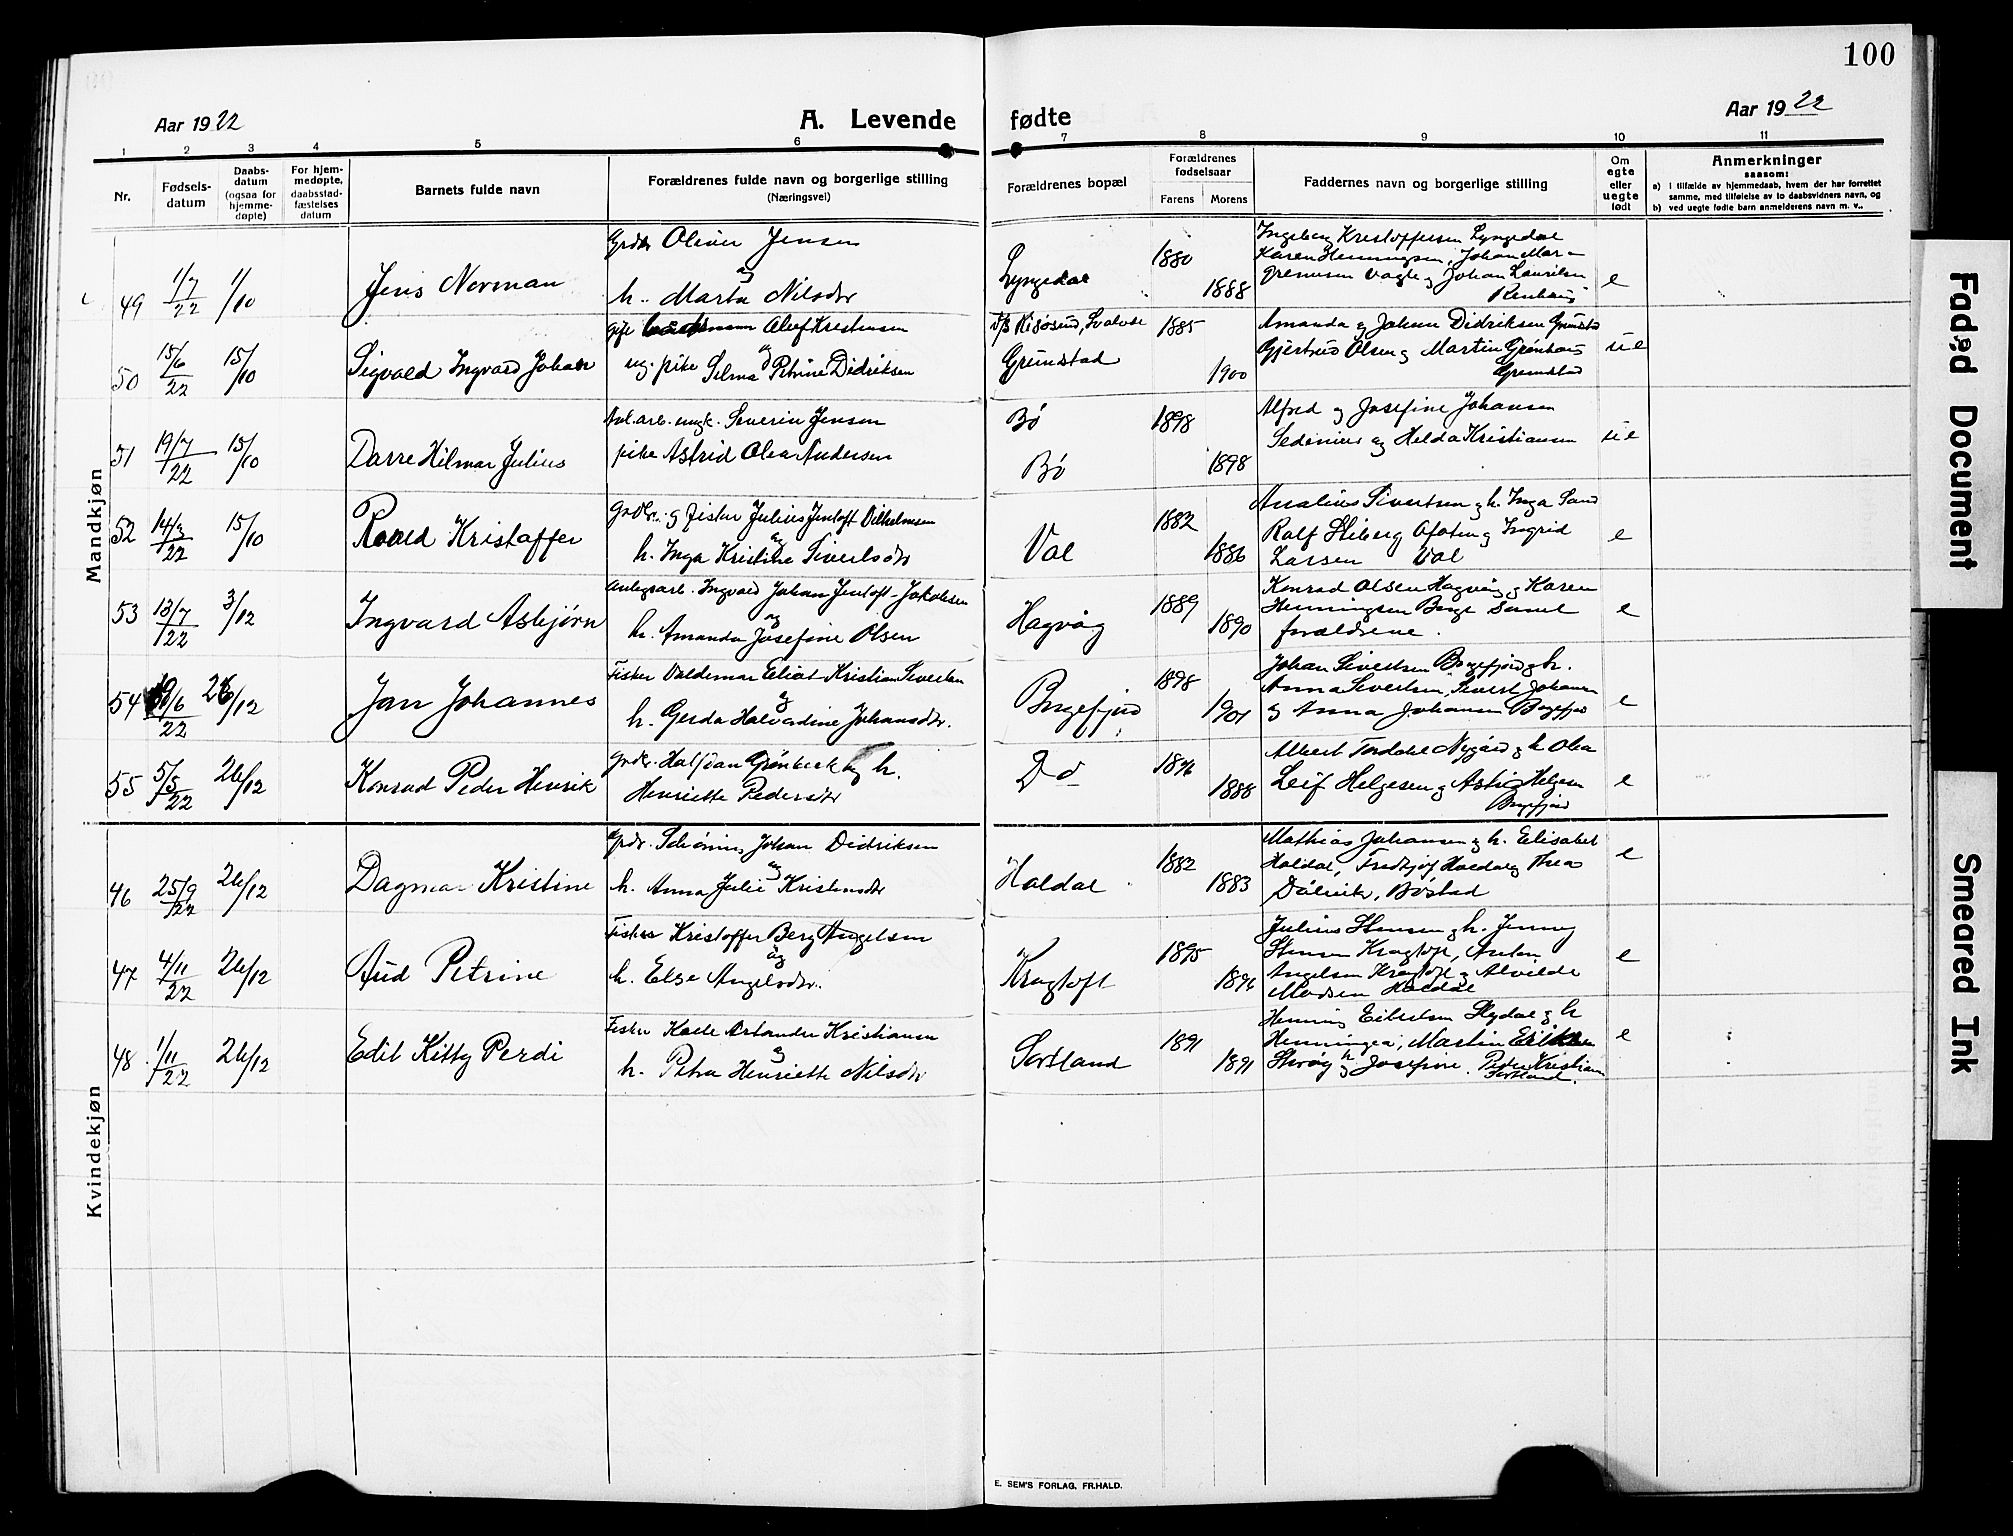 100
Aar 1922
A. Levende fødte
Aar 1922
1 2 3 4 5 6 7 8 9 10 11
Nr.
Fødsels-
datum
Daabs-
datum
(ogsaa for
hjemme-
døpte)
For hjem-
medøpte,
daabsstad-
fæstelses
datum
Barnets fulde navn
Forældrenes fulde navn og borgerlige stilling
(Næringsvei)
Forældrenes bopæl
Forældrenes
fødselsaar
Farens Morens
Faddernes navn og borgerlige stilling
Om
egte
eller
uegte
født
Anmerkninger
saasom:
a) i tilfælde av hjemmedaab, hvem der har forrettet
samme, med tilføielse av to daabsvidners navn, og
b) ved uegte fødte barn anmelderens navn m. v..
Mandkjøn
49 1/7 22 1/10 Jens Norman
Grdbr Oliver Jensen
og
h. Marta Nilsdtr
Lyngedal
1880 1888
Ingeborg Kristoffersen Lyngedal
Karen Henningsen, Johan Mar-
Vagle og Johan Lauritsen
e
50 15/6 22 15/10 Sigvald Ingvard Johan
gift Olaf Kristensen
og
ug. pike Selma Petrine Didriksen
Grundstad
1885 1900
Amanda og Johan Didriksen Grundstad
Gjertrud Olsen og Martin Grønhaug
Grundstad
ue
51 19/7 22 15/10 Darre Hilmar Julius
arb. ungk. Severin Jensen
pike Astrid Olea Andersen
Bø
Bø
1898 1898
Alfred og Josefine Johansen
og Helda Kristiansen
ue
52 14/3 22 15/10 Roald Kristoffer
Grdbr. og fisker Julius Jentoft Vilhelmsen
og
h. Inga Kristine Sivertsdtr
Val
1882 1886
Sivertsen og h. Inga Sand
Rolf Stiberg Ofoten og Ingrid
Larsen Val
e
53 13/7 22 3/12 Ingvard Asbjørn
Anlegsarb. Ingvald Johan Jentoft Jakobsen
og
h. Amanda Josefine Olsen
Hagvåg
1889 1890
Konrad Olsen Hagvåg og Karen
Henningsen Borge samt
forældrene.
e
54 /6 22 26/12 Jan Johannes
Fisker Valdemar Eliot Kristian Sivertsen
og
h. Gerda Halvardine Johansdtr.
Borgefjord
1898 1901
Johan Sivertsen Borgefjord og h.
Anna Sivertsen, Sivert Johansen
og Anna Johansen Borgefjord
e
55 5/5 22 26/12 Konrad Peder Henrik
Grdbr. Halfdan Grønbeck og h.
Henriette Pedersdtr
Do
1896 1888
Albert Torddal Nygård og h. Olea
Leif Helgesen og Astrid Helgesen
Borgefjord
e
Kvindekjøn
46 25/9 22 26/12 Dagmar Kristine
Grdbr. Schøning Johan Didriksen
og
h. Anna Julie Kristensdtr
Haldal
1882 1883
Mathias Johansen og h. Elisabet
Haldal, Fredtjof Haldal og Thea
Dålvik, Bøstad
e
47 4/11 22 26/12 Aud Petrine
Fisker Kristoffer Berg Angelsen
og
h. Else Angelsdtr.
Kragtoft
1895 1896
Julius Stensen og h. Jenny
Stensen Kragtoft, Anton
Angelsen Kragtoft og Alvilde
Madsen Haldal
e
48 1/11 22 26/12 Edit Kitty Perdi
Fisker Karle Kristiansen
og
h. Petra Henriette Nilsdtr
Sortland
1891 1891
Henning Slydal og h
Henningea, Martin Eriksen
og h Josefine. Peder Kristiansen
Sortland.
e
E. SEM'S FORLAG, FR.HALD.
Faded Document
Smeared Ink